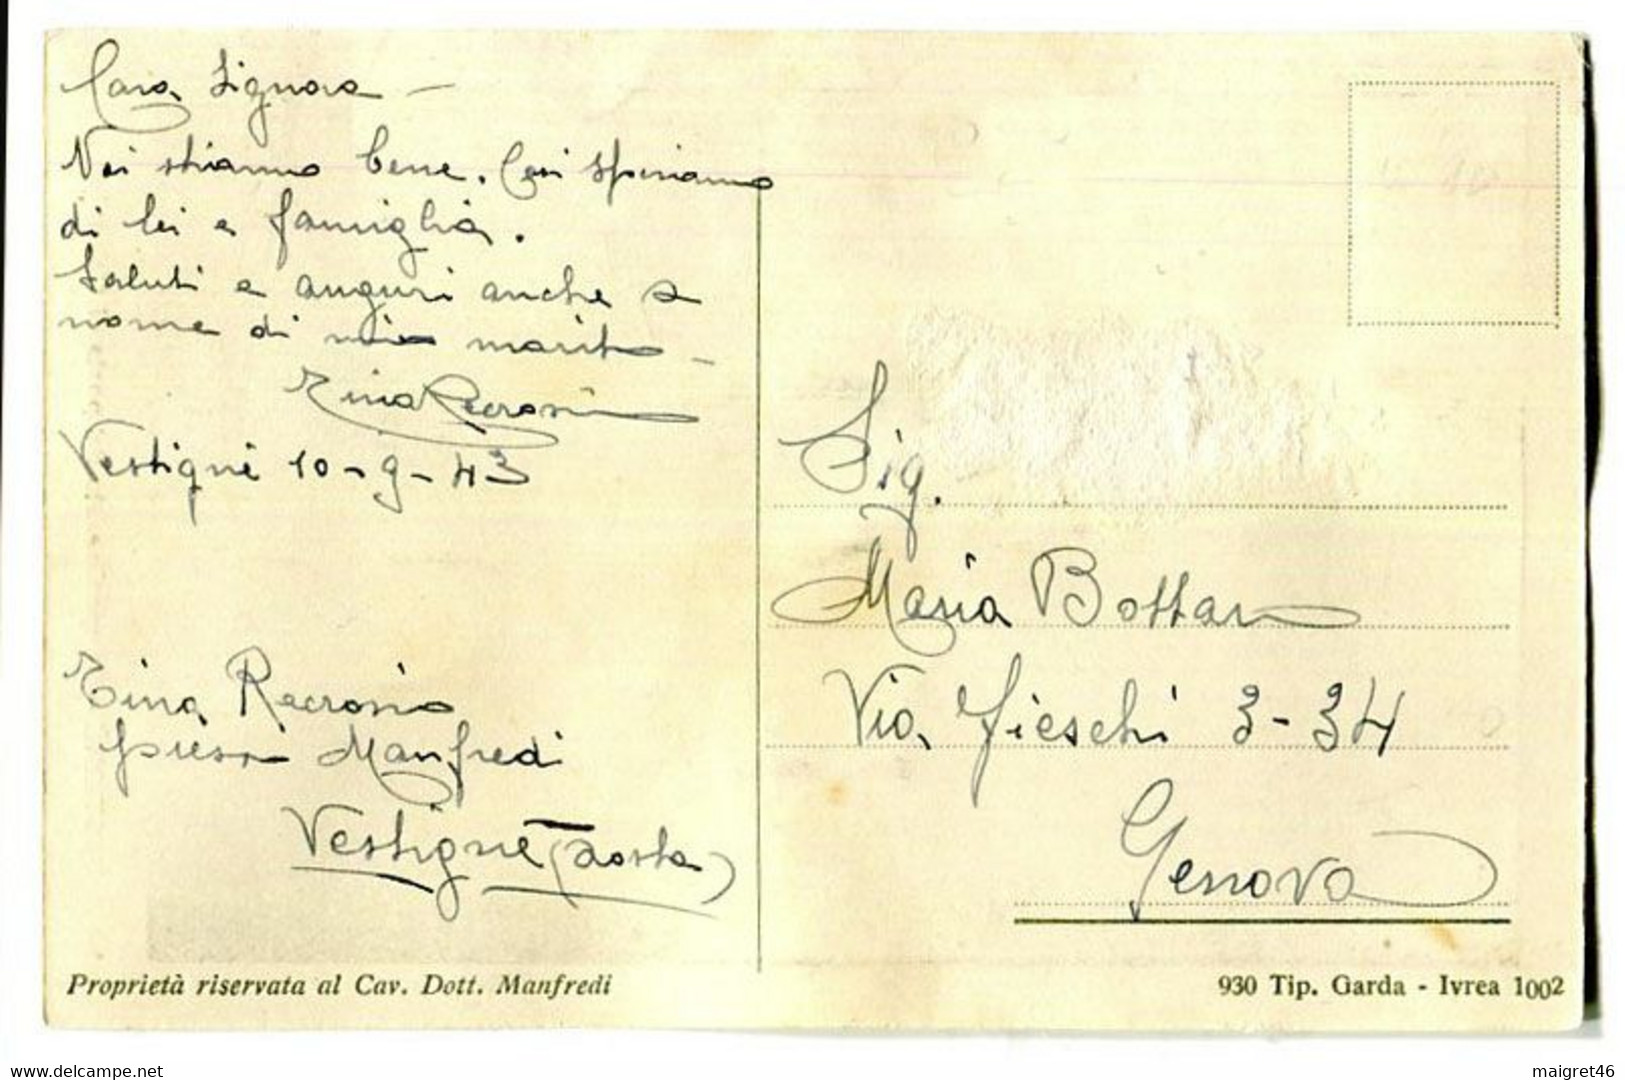 Cara Signora -
Noi stiamo bene. Così speriamo
di lei e famiglia.
Saluti e auguri anche a
nome di mio marito -
Tina Recrosio
Vestignè 10-9-43
Tina Recrosio
presso Manfredi
Vestignè (Aosta)
Proprietà riservata al Cav. Dott. Manfredi
Sig.
Maria Bottar
Via Fieschi 3-34
Genova
930 Tip. Garda - Ivrea 1002
delcampe.net
maigret46